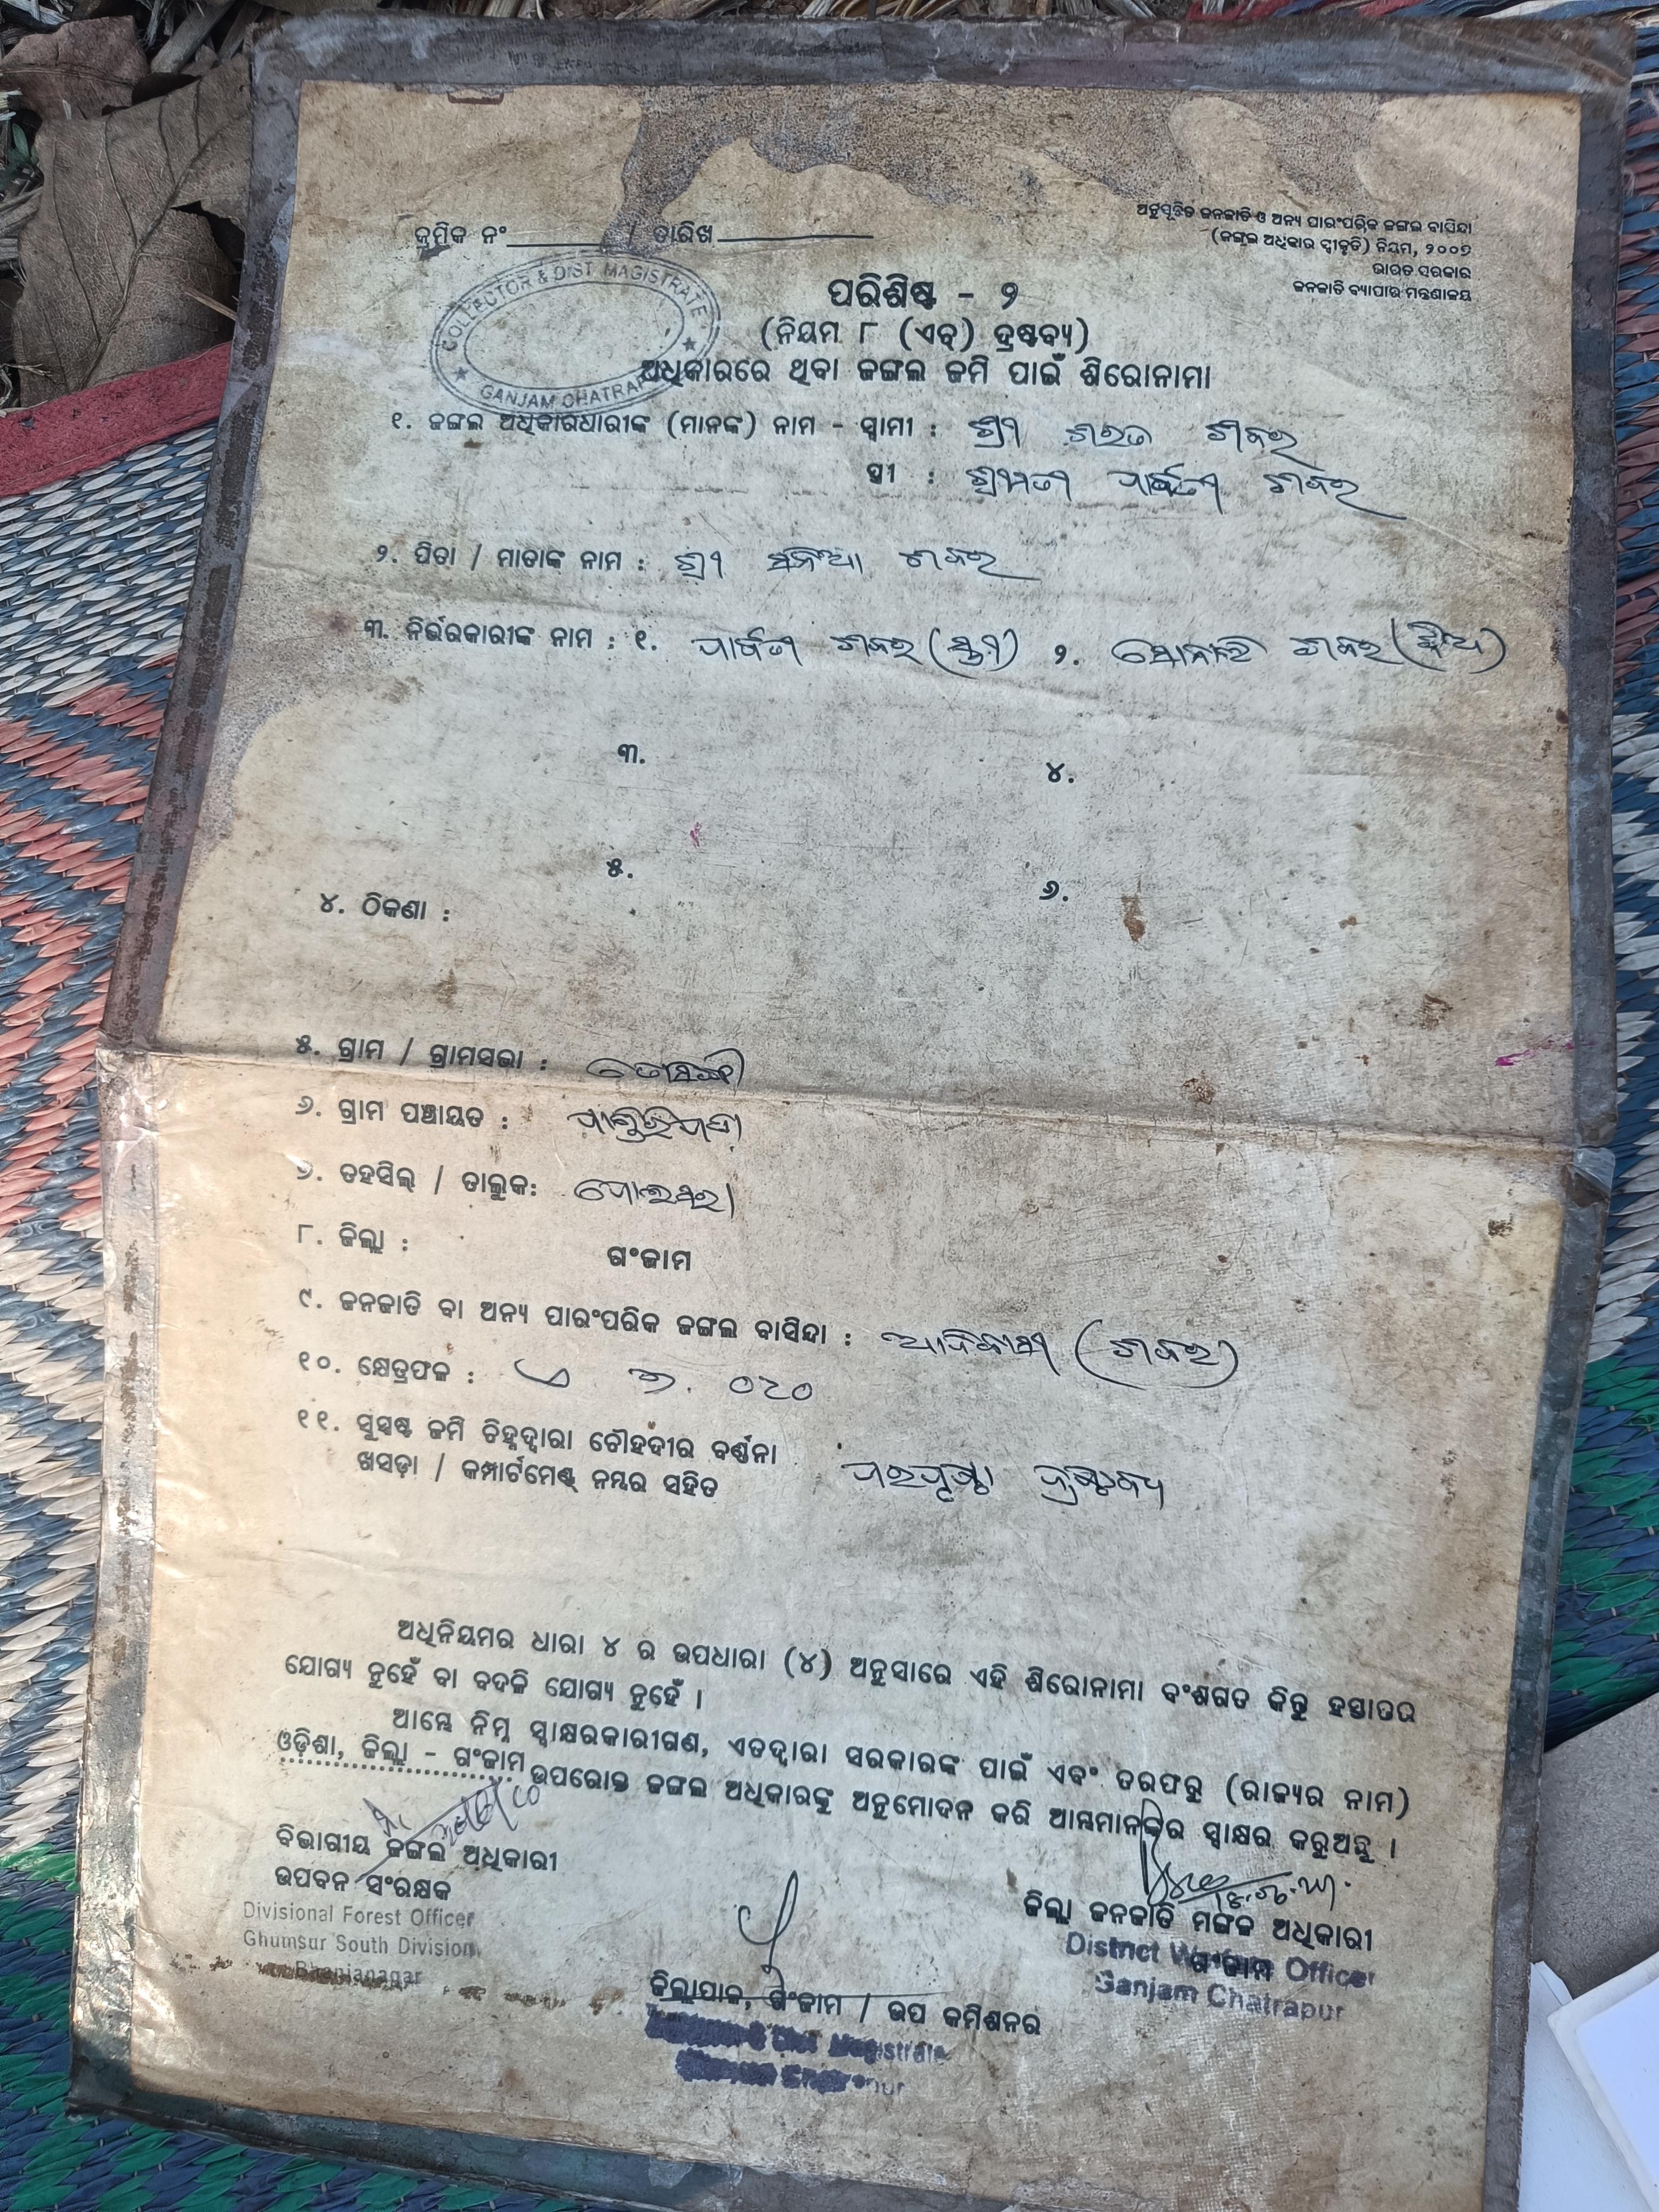 କ୍ରମିକ ନଂ / ତାରିଖ
ଅନୁସୂଚିତ ଜନଜାତି ଓ ଅନ୍ୟ ପାରଂପରିକ ଜଙ୍ଗଲ ବାସିନ୍ଦା
(ଜଙ୍ଗଲ ଅଧିକାର ସ୍ୱୀକୃତି) ନିୟମ, ୨୦୦୭
ଭାରତ ସରକାର
ଜନଜାତି ବ୍ୟାପାର ମନ୍ତ୍ରଣାଳୟ
COLLECTOR & DIST MAGISTRATE
GANJAM CHATRAPUR
ପରିଶିଷ୍ଟ - ୨
(ନିୟମ ୮ (ଏଚ୍) ଦ୍ରଷ୍ଟବ୍ୟ)
ଅଧିକାରରେ ଥିବା ଜଙ୍ଗଲ ଜମି ପାଇଁ ଶିରୋନାମା
୧. ଜଙ୍ଗଲ ଅଧିକାରଧାରୀଙ୍କ (ମାନଙ୍କ) ନାମ - ସ୍ୱାମୀ : ଶ୍ରୀ ଶରତ ଶବର
ସ୍ତ୍ରୀ : ଶ୍ରୀମତୀ ପାର୍ବତୀ ଶବର
୨. ପିତା / ମାତାଙ୍କ ନାମ : ଶ୍ରୀ ଶବର
୩. ନିର୍ଭରକାରୀଙ୍କ ନାମ : ୧. ପାର୍ବତୀ ଶବର (ସ୍ତ୍ରୀ) ୨. ଶବର (ଝିଅ)
୩. ୪.
୫. ୬.
୪. ଠିକଣା :
୫. ଗ୍ରାମ / ଗ୍ରାମସଭା :
୬. ଗ୍ରାମ ପଞ୍ଚାୟତ :
୭. ତହସିଲ୍ / ତାଲୁକ: ପୋଲସରା
୮. ଜିଲ୍ଲା : ଗଂଜାମ
୯. ଜନଜାତି ବା ଅନ୍ୟ ପାରଂପରିକ ଜଙ୍ଗଲ ବାସିନ୍ଦା : ଆଦିବାସୀ (ଶବର)
୧୦. କ୍ଷେତ୍ରଫଳ :
୧୧. ସୁସ୍ପଷ୍ଟ ଜମି ଚିହ୍ନଦ୍ୱାରା ଚୌହଦୀର ବର୍ଣ୍ଣନା
ଖସଡ଼ା / କମ୍ପାର୍ଟମେଣ୍ଟ୍ ନମ୍ବର ସହିତ ପରପୃଷ୍ଠା ଦ୍ରଷ୍ଟବ୍ୟ
ଅଧିନିୟମର ଧାରା ୪ ର ଉପଧାରା (୪) ଅନୁସାରେ ଏହି ଶିରୋନାମା ବଂଶଗତ କିନ୍ତୁ ହସ୍ତାନ୍ତର
ଯୋଗ୍ୟ ନୁହେଁ ବା ବଦଳି ଯୋଗ୍ୟ ନୁହେଁ ।
ଆମ୍ଭେ ନିମ୍ନ ସ୍ୱାକ୍ଷରକାରୀଗଣ, ଏତଦ୍ୱାରା ସରକାରଙ୍କ ପାଇଁ ଏବଂ ତରଫରୁ (ରାଜ୍ୟର ନାମ)
ଓଡ଼ିଶା, ଜିଲ୍ଲା - ଗଂଜାମ ଉପରୋକ୍ତ ଜଙ୍ଗଲ ଅଧିକାରଙ୍କୁ ଅନୁମୋଦନ କରି ଆମ୍ଭମାନଙ୍କର ସ୍ୱାକ୍ଷର କରୁଅଛୁ ।
ବିଭାଗୀୟ ଜଙ୍ଗଲ ଅଧିକାରୀ
ଉପବନ ସଂରକ୍ଷକ
Divisional Forest Officer
Ghumsur South Division
Bhanjanagar
ଜିଲ୍ଲା ଜନଜାତି ମଙ୍ଗଳ ଅଧିକାରୀ
ଗଂଜାମ
District Welfare Officer
Ganjam Chatrapur
ଜିଲ୍ଲାପାଳ, ଗଂଜାମ / ଉପ କମିଶନର